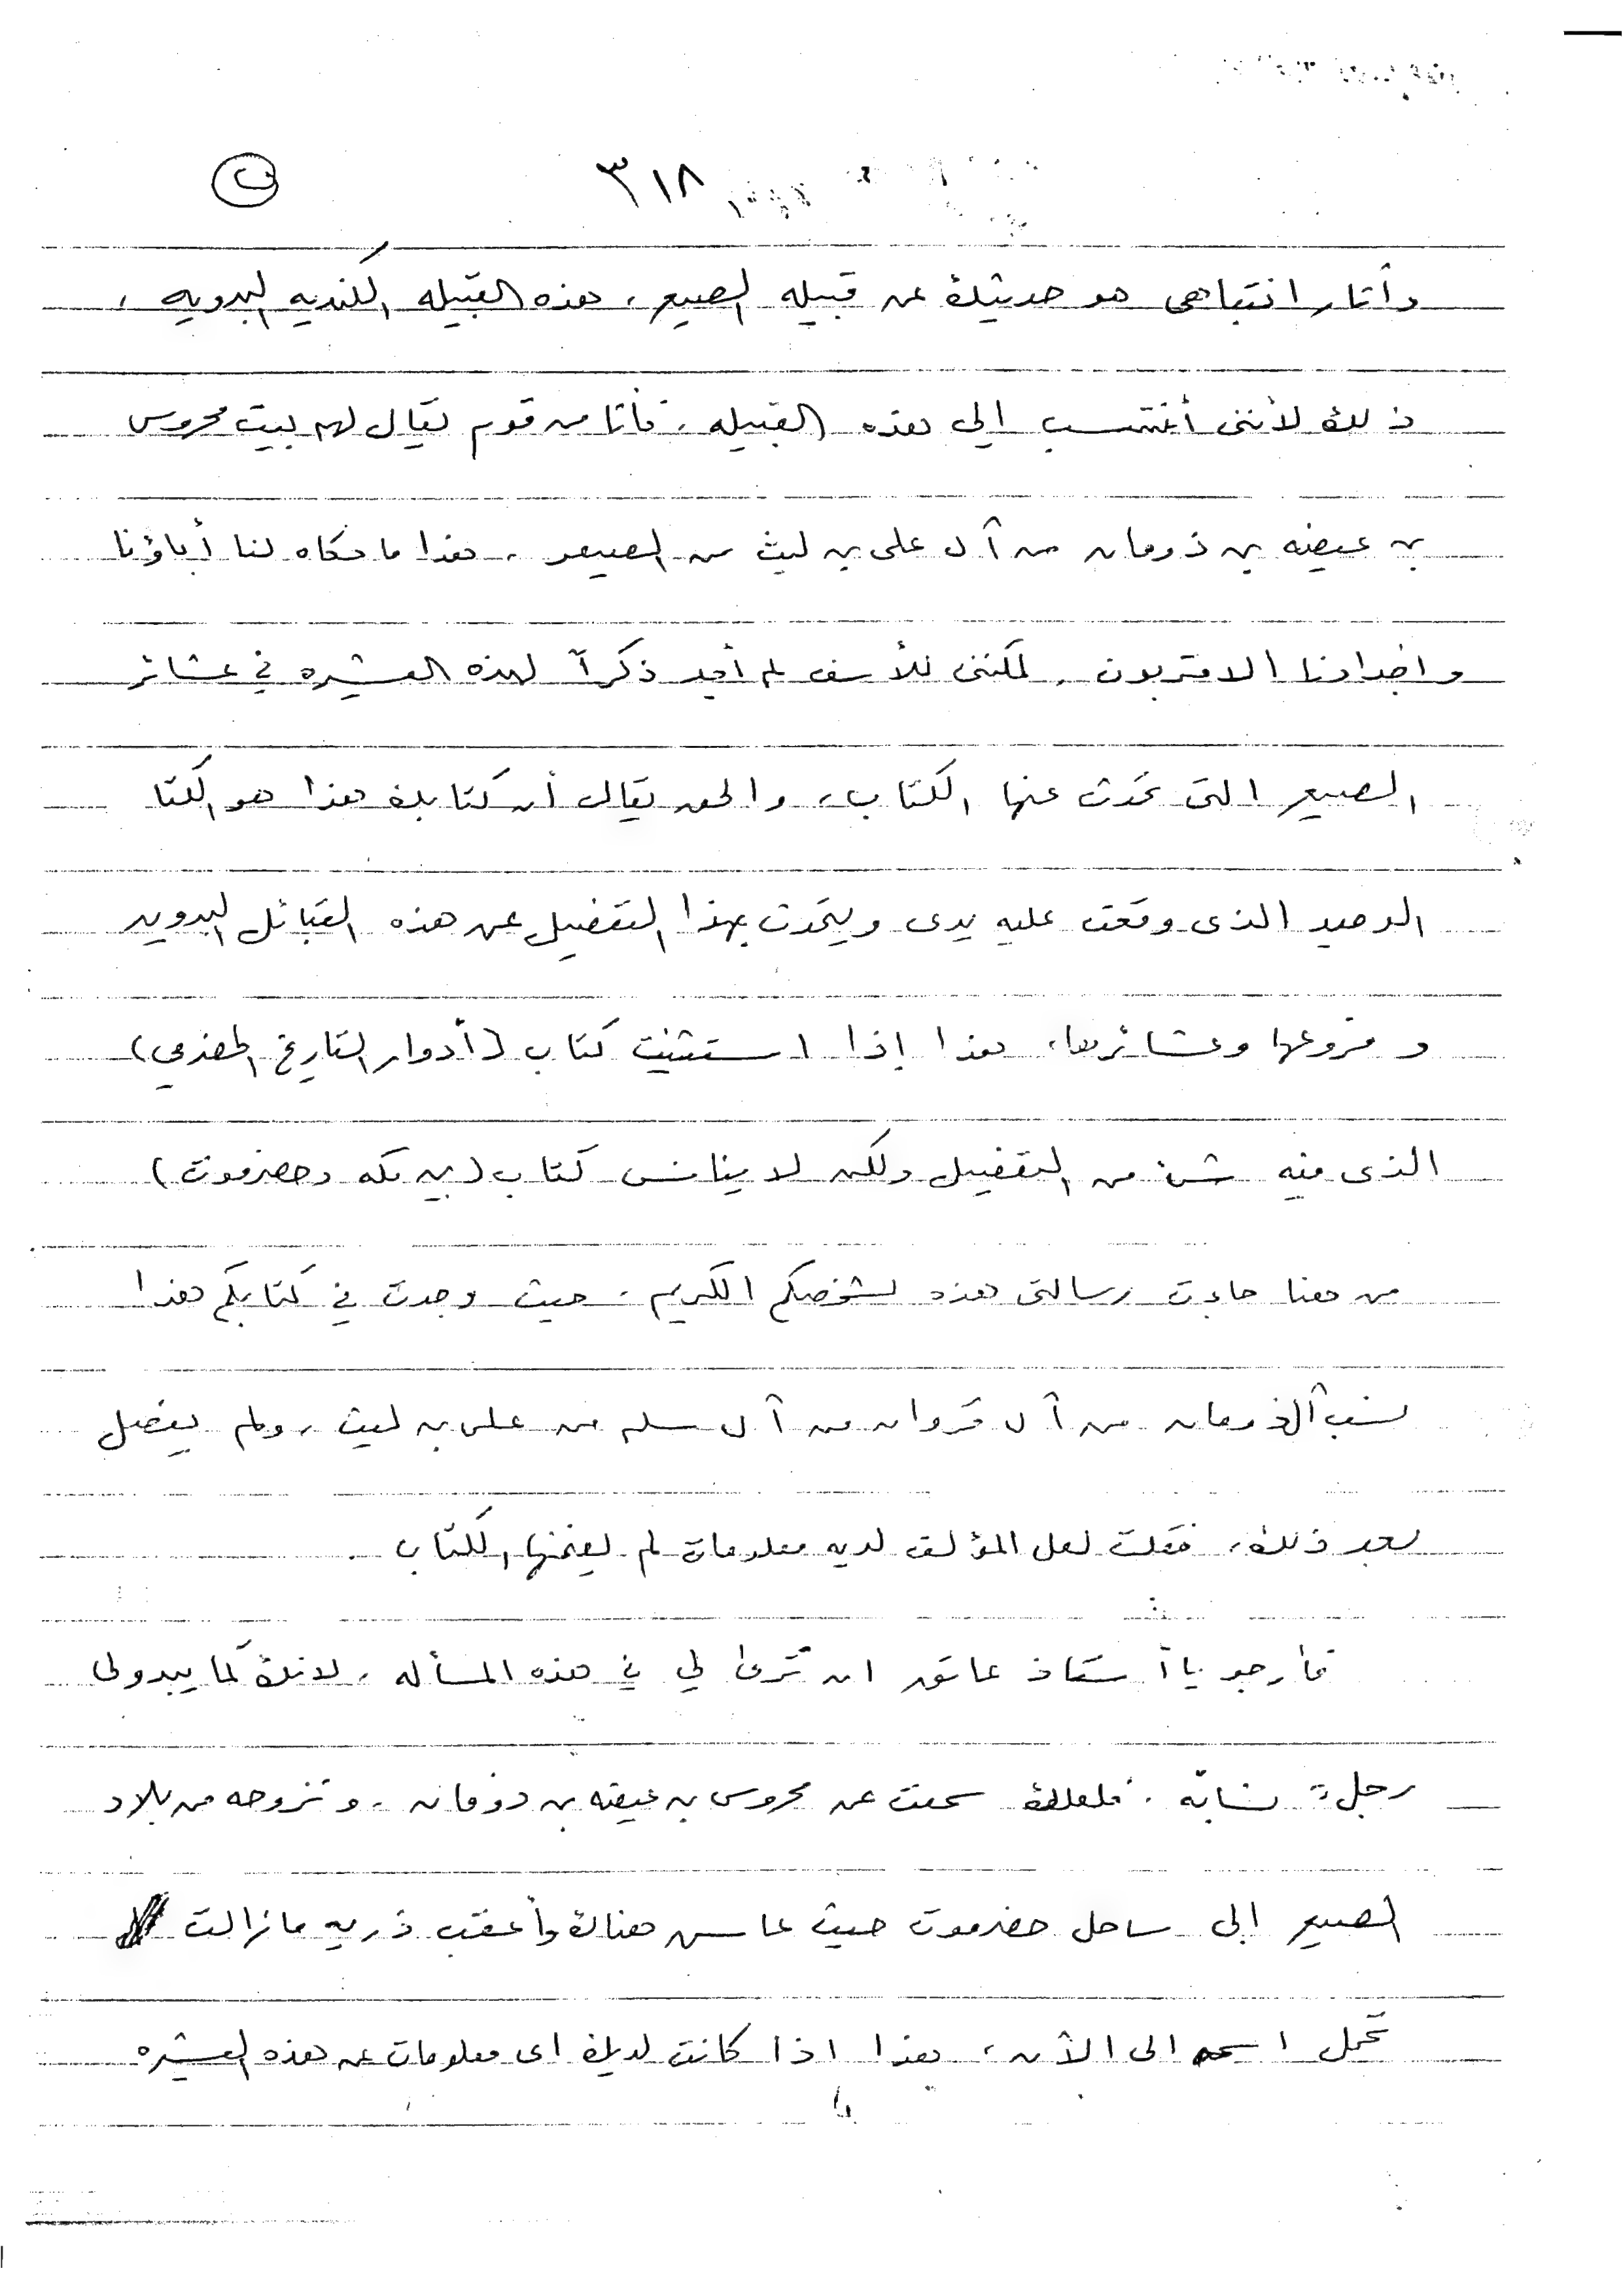 ٣١٨
وأثار انتباهى هو حديثك عن قبيله الصيعر، هذه القبيله الكنديه البدويه ،
ذلك لأننى أنتسب الى هذه القبيله . فأنا من قوم يقال لهم بيت محروس
بن عيضه بن ذومان من آل على بن ليث من الصيعر ، هذا ما حكاه لنا أباؤنا
واجدادنا الاقربون . لكننى للأسف لم أجد ذكرآ لهذه العشيره في عشائر
الصيعر التى تحدث عنها الكتاب، والحق يقال أن كتابك هذا هو الكتا
الوحيد الذى وقعت عليه يدى ويتحدث بهذا التفصيل عن هذه القبائل البدويه
وفروعها وعشائرها، هذا إذا استثنيت كتاب (أدوار التاريخ الحضرمي)
الذى فيه شئ من التفصيل ولكن لا ينافس كتاب (بين مكه وحضرموت)
من هنا جاءت رسالتى هذه لشخصكم الكريم . حيث وجدت في كتابكم هذا
نسب آل ذومان من آل قروان من آل سلم من على بن ليث ، ولم يفصل
بعد ذلك ، فقلت لعل المؤلف لديه معلومات لم يضمنها الكتاب .
فأرجو ياأستاذ عاتق ان لي في هذه المسأله ، لانك كما يبدولى
رجل نسابه . فلعلك سمعت عن محروس بن عيضه بن ذومان ، ونزوحه من بلاد
الصيعر الى ساحل حضرموت حيث عاش هناك وأعقب ذريه مازالت
تحمل اسمه الى الآن ، هذا اذا كانت لديك اى معلومات عن هذه العشيره